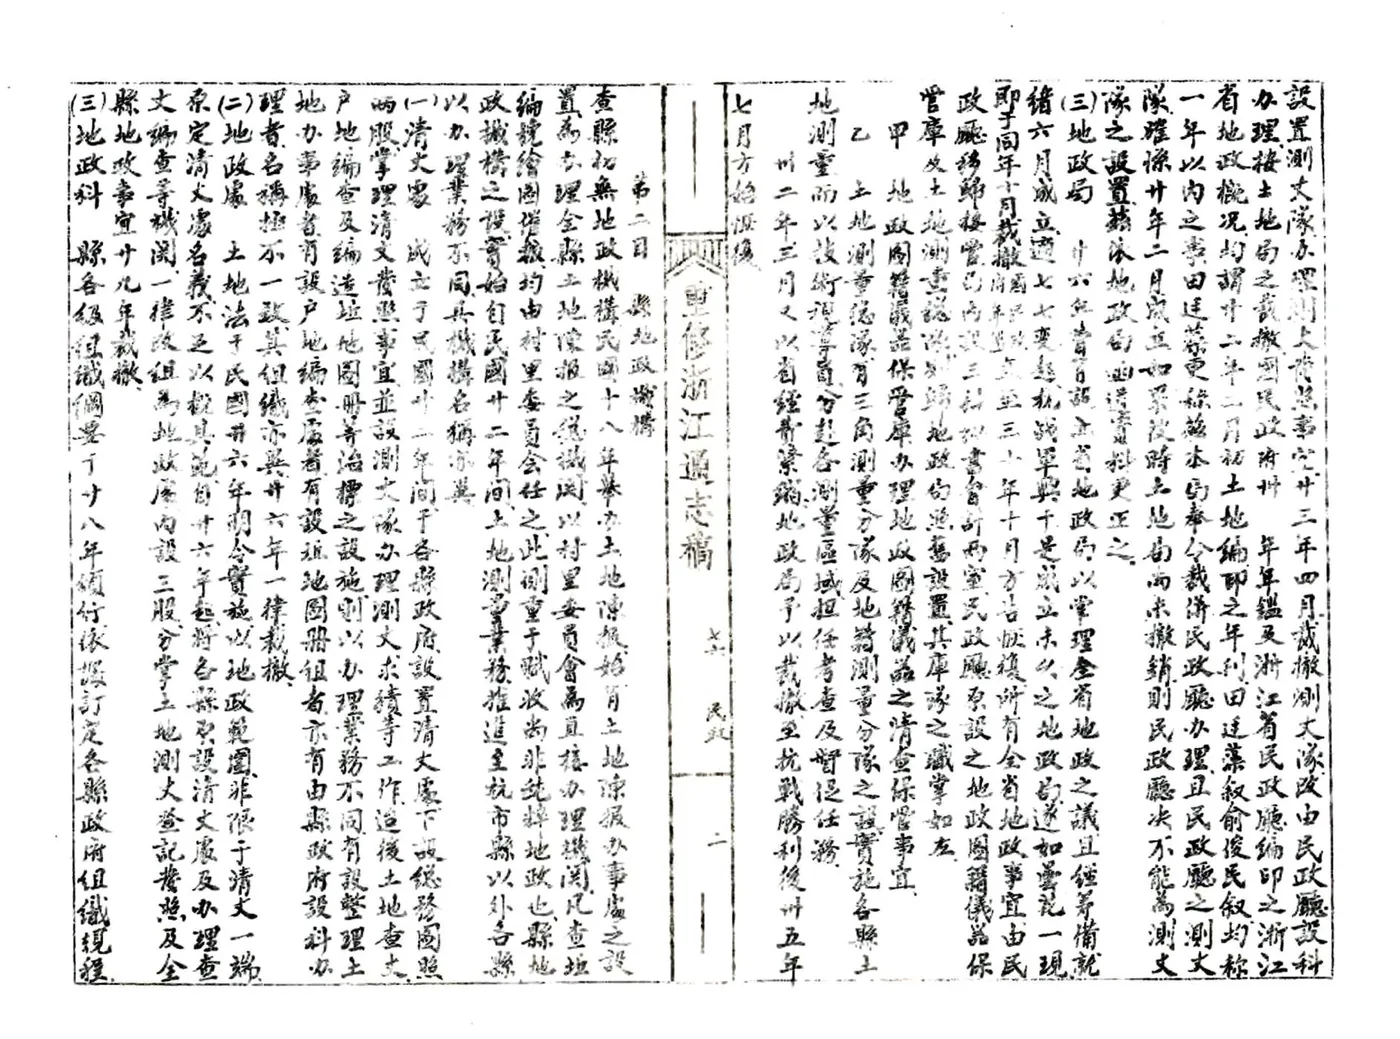 設置測丈隊办理測丈發照事宜廿三年四月裁撤測丈隊改由民政廳設科
办理按土地局之裁撤國民政府卅 年年鑑及浙江省民政廳編印之浙江
省地政概况均謂廿二年二月初土地編印之年刊田廷藻叙俞俊民叙均称
一年以内之事田廷藻更称兹本局奉令裁併民政廳办理且民政廳之測丈
隊確係廿年二月成立如果彼時土地局尚未撤銷則民政廳决不能為測丈
隊之設置兹依地政局函送資料更正之
(三)地政局 廿六年省有設立省地政局以掌理全省地政之議且經筹備就
緒六月成立適七七变起抗战軍興于是成立未久之地政局遂如曇花一現
即于同年十月裁撤 至三十年十月方告恢復所有全省地政事宜由民
政廳移歸接管局内設三科 書會計两室民政廳原設之地政圖籍儀器保
管庫及土地測量總隊則歸地政局照舊設置其庫隊之職掌如左
甲 地政圖籍儀器保管庫办理地政圖籍儀器之清查保管事宜
乙 土地測量總隊有三角測量分隊及地籍測量分隊之設實施各縣土
地測量而以技術視導員分赴各測量區域担任考查及督促任務
卅二年三月又以省經費緊縮地政局予以裁撤至抗戰勝利後卅五年
七月方始恢復
重修浙江通志稿
民政
二
第二目 縣地政機構
查縣初無地政機構民國十八年舉办土地陳报始有土地陳报办事處之設
置為办理全縣土地陳报之總機関以村里委員會為直接办理機関凡查坵
編號繪圖催报均由村里委員会任之此側重于賦收尚非純粹地政也縣地
政機構之設實始自民國廿二年間土地測量業務推進至杭市縣以外各縣
以办理業務不同其機構名稱亦異
(一)清丈處 成立于民國廿二年間于各縣政府設置清丈處下設總務圖照
两股掌理清丈發照事宜並設測丈隊办理測丈求積等工作造後土地查丈
戶地編查及編造坵地圖册等治標之設施則以办理業務不同有設整理土
地办事處者有設戶地編查處者有設坵地圖册组者亦有由縣政府設科办
理者名稱極不一致其组織亦異廿六年一律裁撤
(二)地政處 土地法于民國廿六年明令實施以地政範圍非限于清丈一端
原定清丈處名義不足以概其範自廿六年起將各縣原設清丈處及办理查
丈編查等機関一律改组為地政處内設三股分掌土地測丈登記發照及全
縣地政事宜廿九年裁撤
(三)地政科 縣各级组織綱要于廿八年頒行依據訂定各縣政府组織規程